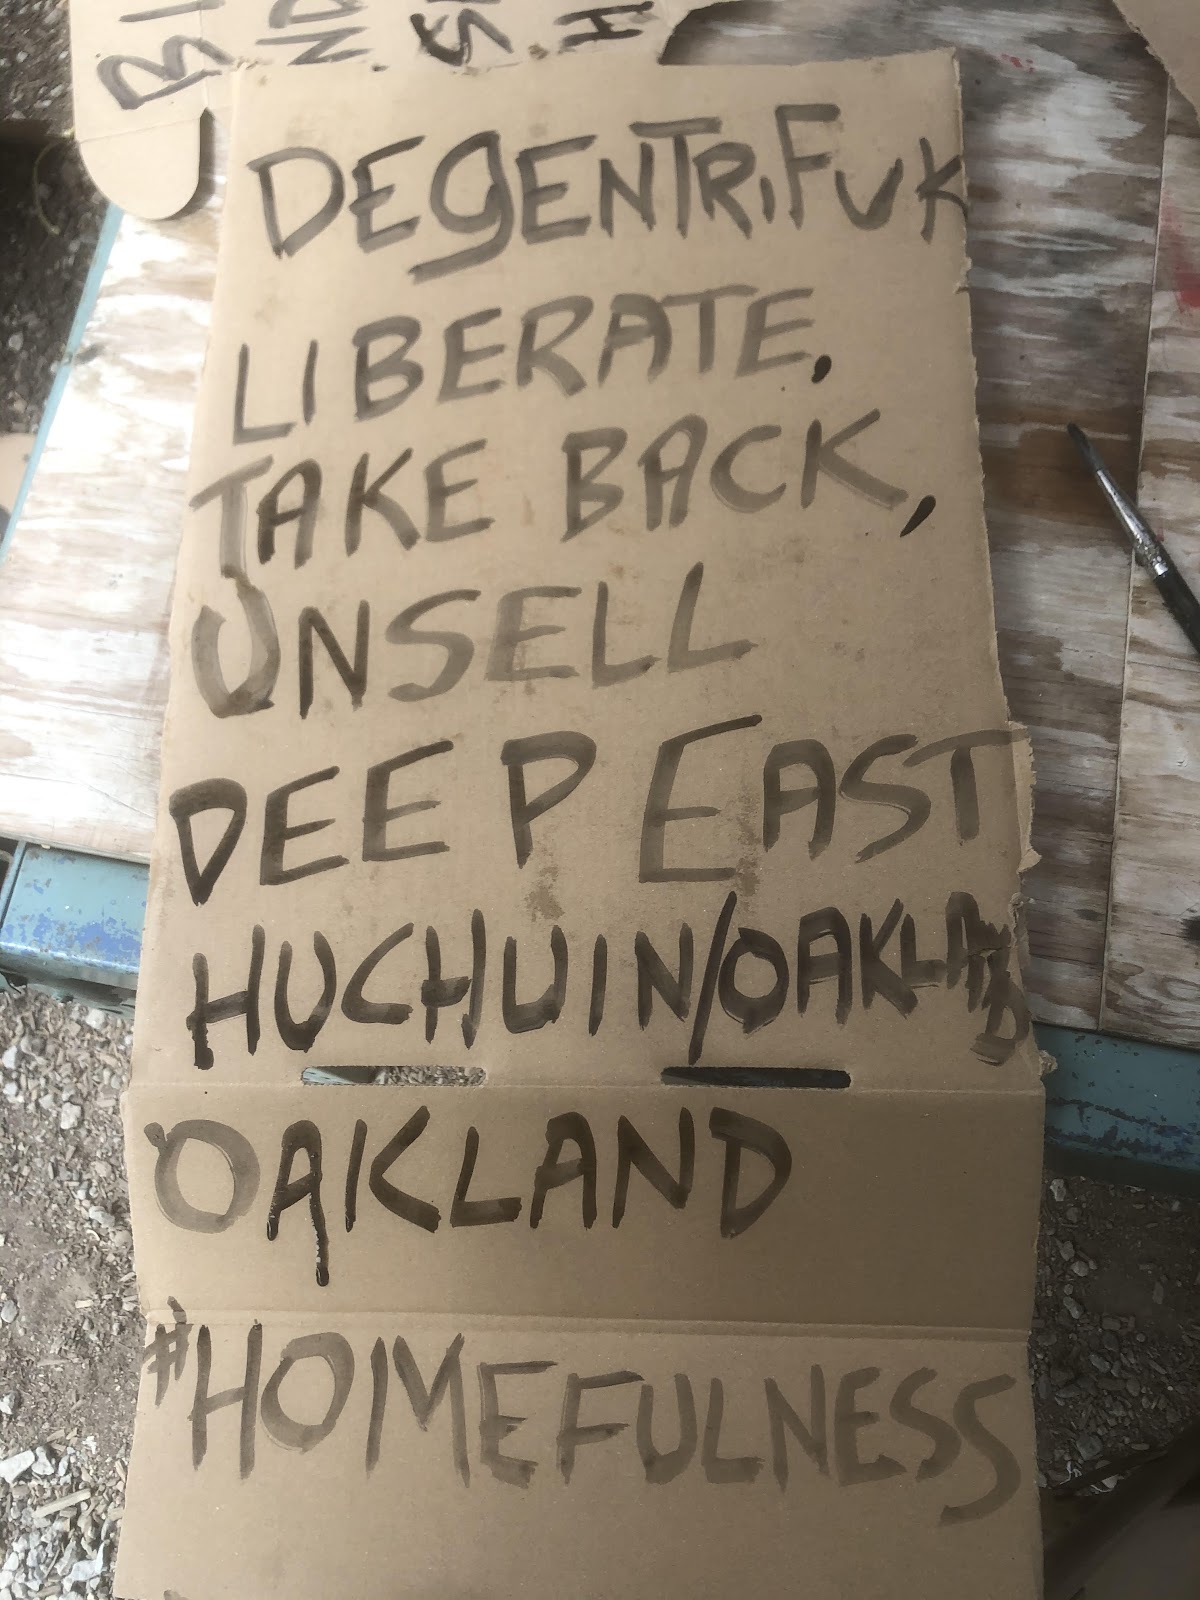 DEGENTRIFUK
LIBERATE,
TAKE BACK,
UNSELL
DEEP EAST
HUCHUIN/OAKLAND
OAKLAND
#HOMEFULNESS